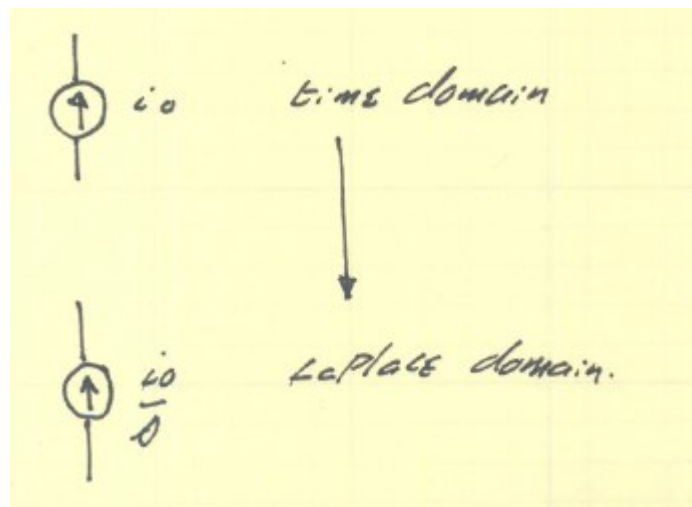 io time domain
io
s
LaPlace domain.